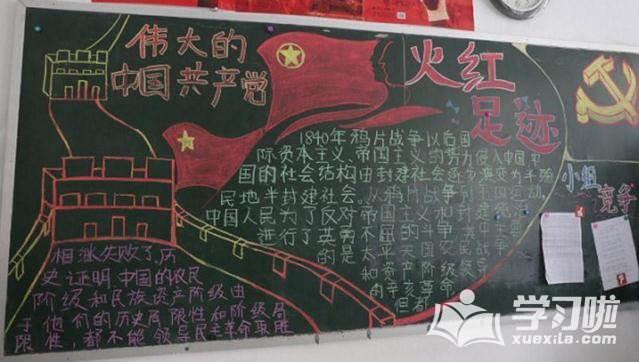 伟大的
中国共产党
火红
足迹
1840年鸦片战争以后国
际资本主义、帝国主义的势力侵入中国,中
国的社会结构由封建社会逐步演变为半殖
民地半封建社会。从鸦片战争到
中国人民为了反对帝国主义和封建
进行了英勇不屈的斗
的是太平天国农民战
和资产阶级
的辛亥革命
但都
相继失败了,历
史证明,中国的农民
阶级和民族资产阶级由
于他们的历史局限性和阶级局
限性,都不能领导民主革命取胜
小组
竞争
学习啦
xuexila.com